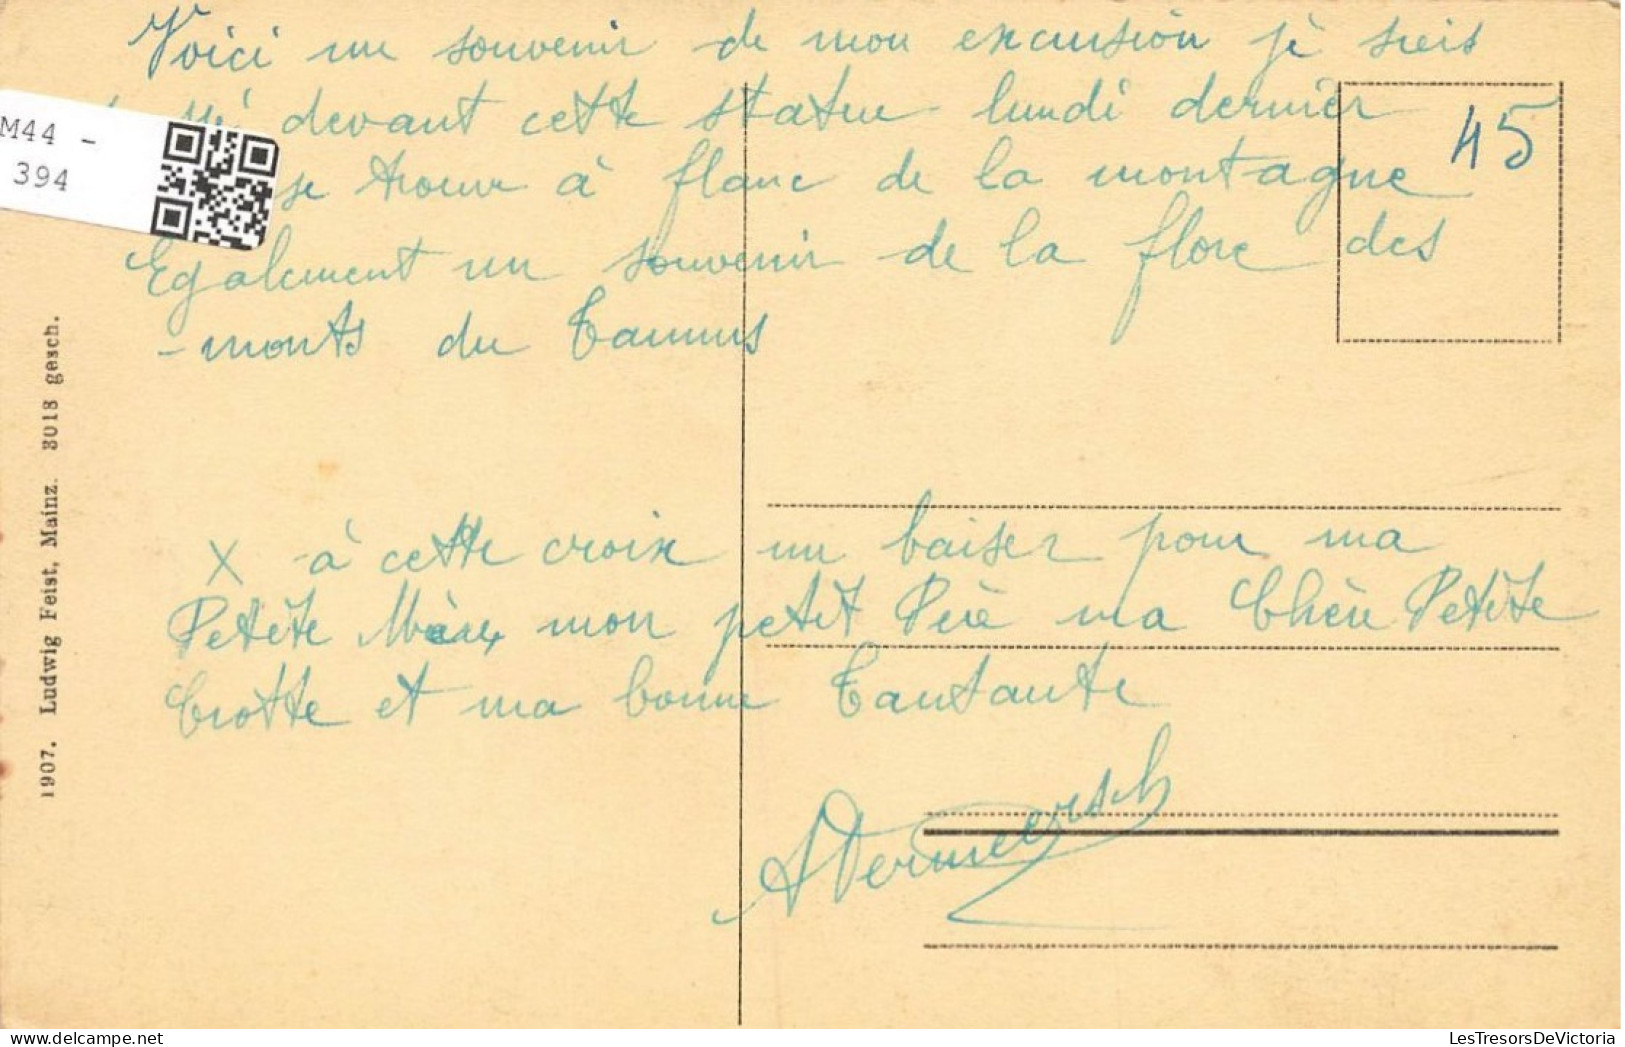 Voici un souvenir de mon excursion je suis
devant cette statue lundi dernier
se trouve à flanc de la montagne
Egalement un souvenir de la flore des
-monts du Taunus
45
M44 -
394
X à cette croix un baiser pour ma
Petite Mère mon petit Père ma Chère Petite
Crotte et ma bonne Tantante
AVermeersch
1907. Ludwig Feist, Mainz. 3018 gesch.
LesTresorsDeVictoria